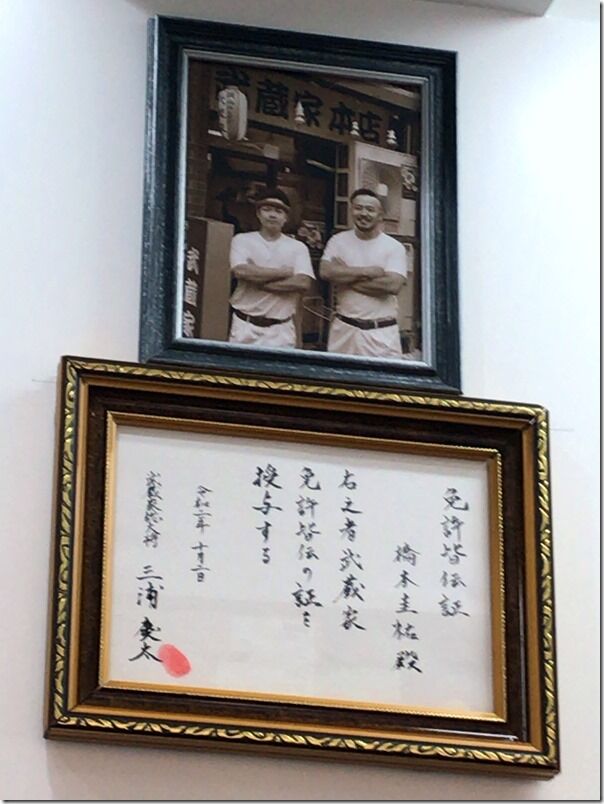 武蔵家本店
武蔵家
免許皆伝証
橋本圭祐殿
右之者武蔵家
免許皆伝の証を
授与する
令和二年十月二日
三浦慶太